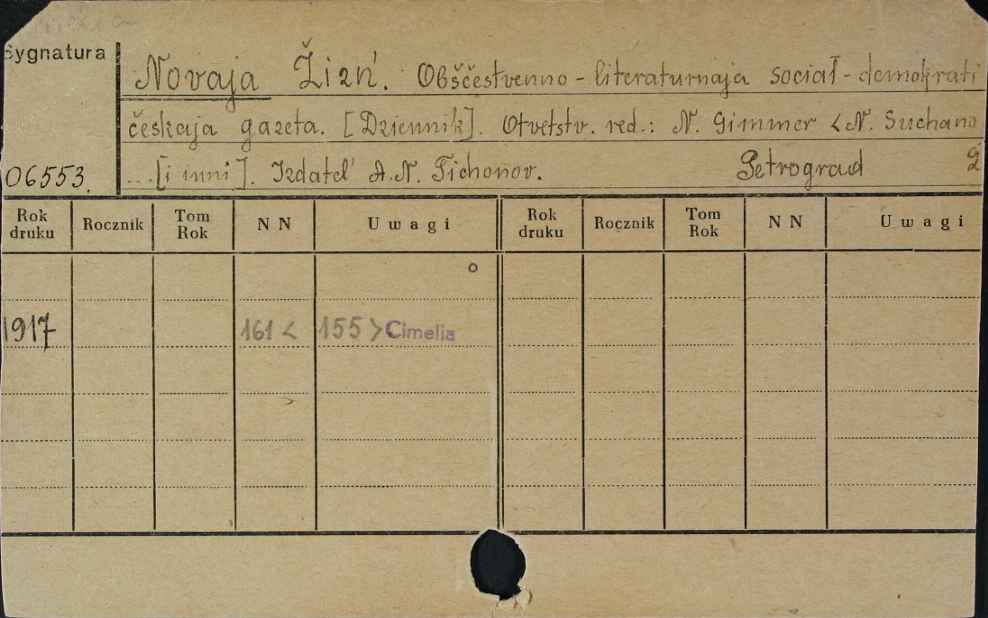 Sygnatura
Novaja Žizń. Obščestvenno-literaturnaja socjał-demokrati
českaja gazeta. [Dziennik]. Otvetstv. red.: N. Gimmer <N. Suchano
06553. ...[i inni]. Izdateľ A.N. Tichonov. Petrograd
Rok druku Rocznik Tom Rok NN Uwagi Rok druku Rocznik Tom Rok NN Uwagi
1917 161 < 155 > Cimelia